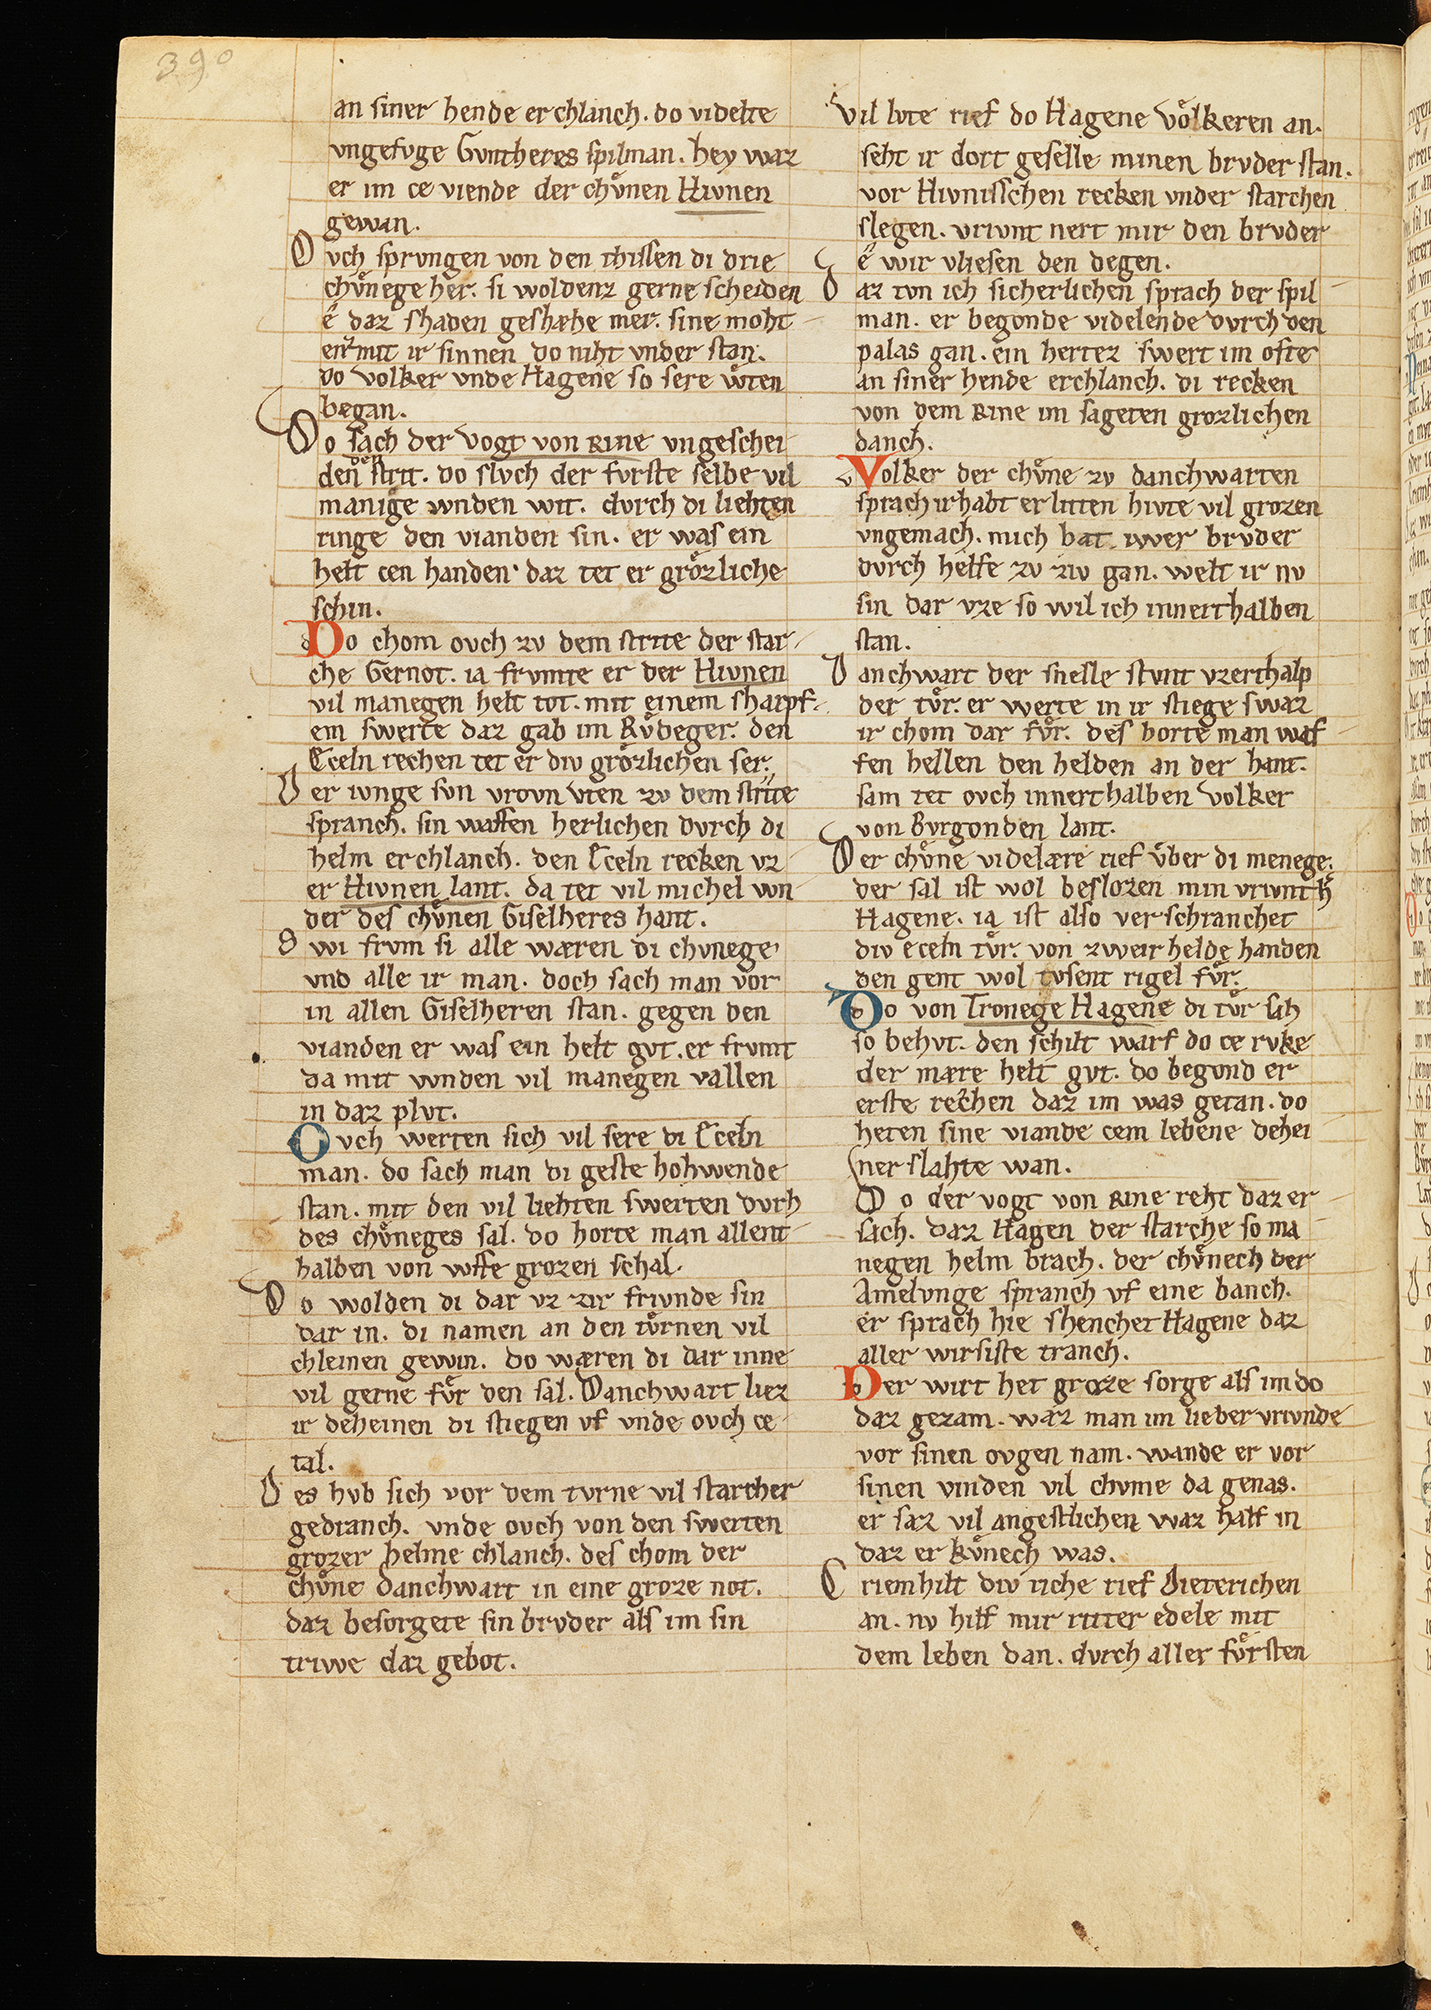 390
an siner hende erchlanch. do videlte
vngefvge Gvntheres spilman. hey waz
er im ce viende der chvͦnen Hivnen
gewan.
Ovch sprvngen von den thissen di drie
chvͦnege her. si woldenz gerne scheiden
ê daz shaden geshæhe mer. sine moht
enz mit ir sinnen do niht vnder stan.
do volker vnde Hagene so sere wͦten
began.
Do sach der vogt von Rine vngeschei
den den strit. do slvch der fvrste selbe vil
manige wnden wit. dvrch di liehten
ringe den vianden sin. er was ein
helt cen handen. daz tet er groͮzliche
schin.
Do chom ovch zv dem strite der star
che Gernot. ia frvmte er der Hivnen
vil manegen helt tot. mit einem sharpf
em swerte daz gab im Rvͦdeger. den
Eceln rechen tet er div groͮzlichen ser.
Der ivnge svn vrovn vten zv dem strite
spranch. sin waffen herlichen dvrch di
helm erchlanch. den Eceln recken vz
er Hivnen lant. da tet vil michel wn
der des chvͦnen Giselheres hant.
Swi frvm si alle wæren di chvnege
vnd alle ir man. doch sach man vor
in allen Giselheren stan. gegen den
vianden er was ein helt gvt. er frvmt
da mit wnden vil manegen vallen
in daz plvt.
Ovch werten sich vil sere di Eceln
man. do sach man di geste hohwende
stan. mit den vil liehten swerten dvrh
des chvͦneges sal. do horte man allent
halben von wffe grozen schal.
Do wolden di dar vz zir frivnde sin
dar in. di namen an den tvͦrnen vil
chleinen gewin. do wæren di dar inne
vil gerne fvͦr den sal. Danchwart liez
ir deheinen di stiegen vf vnde ovch ce
tal.
Des hvb sich vor dem tvrne vil starcher
gedranch. vnde ovch von den swerten
grozer helme chlanch. des chom der
chvͦne danchwart in eine groze not.
daz besorgete sin brvder als im sin
triwe daz gebot.
Vil lvte rief do Hagene voͮlkeren an.
seht ir dort geselle minen brvder stan.
vor Hivnisschen recken vnder starchen
slegen. vrivnt nert mir den brvder
ê wir vliesen den degen.
Daz tvn ich sicherlichen sprach der spil
man. er begonde videlende dvrch den
palas gan. ein hertez swert im ofte
an siner hende erchlanch. di recken
von dem Rine im sageten grozlichen
danch.
Volker der chvͦne zv danchwarten
sprach ir habt erlitten hivte vil grozen
vngemach. mich bat iwer brvder
dvrch helfe zv ziv gan. welt ir nv
sin dar vze so wil ich innerthalben
stan.
Danchwart der snelle stvnt vzerthalp
der tvͦr. er werte in ir stiege swaz
ir chom dar fvͦr. des horte man waf
fen hellen den helden an der hant.
sam tet ovch innerthalben volker
von Bvrgonden lant.
Der chvͦne videlære rief vͦber di menege.
der sal ist wol beslozen min vrivnt h̄
Hagene. ia ist also verschranchet
div eceln tvͦr. von zweir helde handen
den gent wol tvsent rigel fvͦr.
Do von Tronege Hagene di tvͦr sah
so behvt. den schilt warf do ce rvke
der mære helt gvt. do begvnd er
erste rechen daz im was getan. do
heten sine viande cem lebene dehei
ner slahte wan.
Do der vogt von Rine reht daz er
sach. daz Hagen der starche so ma
negen helm brach. der chvͦnech der
Amelvnge spranch vf eine banch.
er sprach hie shenchet Hagene daz
aller wirsiste tranch.
Der wirt het groze sorge als im do
daz gezam. waz man im lieber vrivnde
vor sinen ovgen nam. wande er vor
sinen vinden vil chvme da genas.
er saz vil angestlichen waz half in
daz er kvͦnech was.
Criemhilt div riche rief dieterichen
an. nv hilf mir ritter edele mit
dem leben dan. dvrch aller fvͦrsten